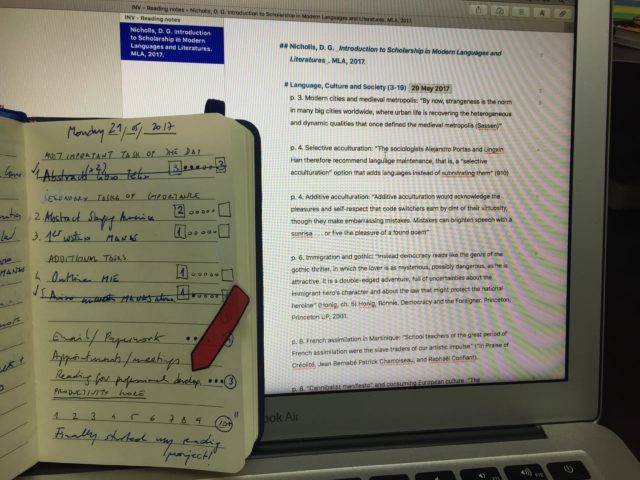 INV - Reading notes — Nicholls, D. G. Introduction to Scholarship in Modern Languages and Literatures. MLA, 2017.
INV - Reading notes
Nicholls, D. G. Introduction
to Scholarship in Modern
Languages and Literatures.
MLA, 2017.
## Nicholls, D. G. _Introduction to Scholarship in Modern Languages and
Literatures_. MLA, 2017.
# Language, Culture and Society (3-19) 29 May 2017
p. 3. Modern cities and medieval metropolis: "By now, strangeness is the norm
in many big cities worldwide, where urban life is recovering the heterogeneous
and dynamic qualities that once defined the medieval metropolis (Sassen)"
p. 4. Selective acculturation: "The sociologists Alejandro Portes and Lingxin
Han therefore recommend language maintenance, that is, a "selective
acculturation" option that adds languages instead of substrating them" (910)
p. 4. Additive acculturation: "Additive acculturation would acknowledge the
pleasures and self-respect that code switchers earn by dint of their virtuosity,
though they make embarrassing mistakes. Mistakes can brighten speech with a
sunrisa . . . or five the pleasure of a found poem"
p. 6. Immigration and gothic: "Instead democracy reads like the genre of the
gothic thriller, in which the lover is as mysterious, possibly dangerous, as he is
attractive. It is a double-edged adventure, full of uncertainties about the
immigrant hero's character and about the law that might protect the national
heroine" (Honig, ch. 5) Honig, Bonnie. Democracy and the Foreigner. Princeton:
Princeton UP, 2001.
p. 8. French assimilation in Martinique: "School teachers of the great period of
French assimilation were the slave traders of our artistic impulse" ("In Praise of
Créolité, Jean Bernabé Patrick Chamoiseau, and Raphaël Confiant).
p. 8. "Cannibalist manifesto" and consuming European culture: "The
Book Air
Monday 29/05/2017
MOST IMPORTANT TASK OF THE DAY
1. Abstracts 3
SECONDARY TASKS OF IMPORTANCE
2. Abstract America 2
3. 1st MANAS 1
ADDITIONAL TASKS
4. Outline MIE 1
5. MANAS 1
Email / Paperwork
Appointments / meetings
Reading for professional develop. 3
PRODUCTIVITY SCORE
1 2 3 4 5 6 7 8 9 10+
Finally started my reading
project!